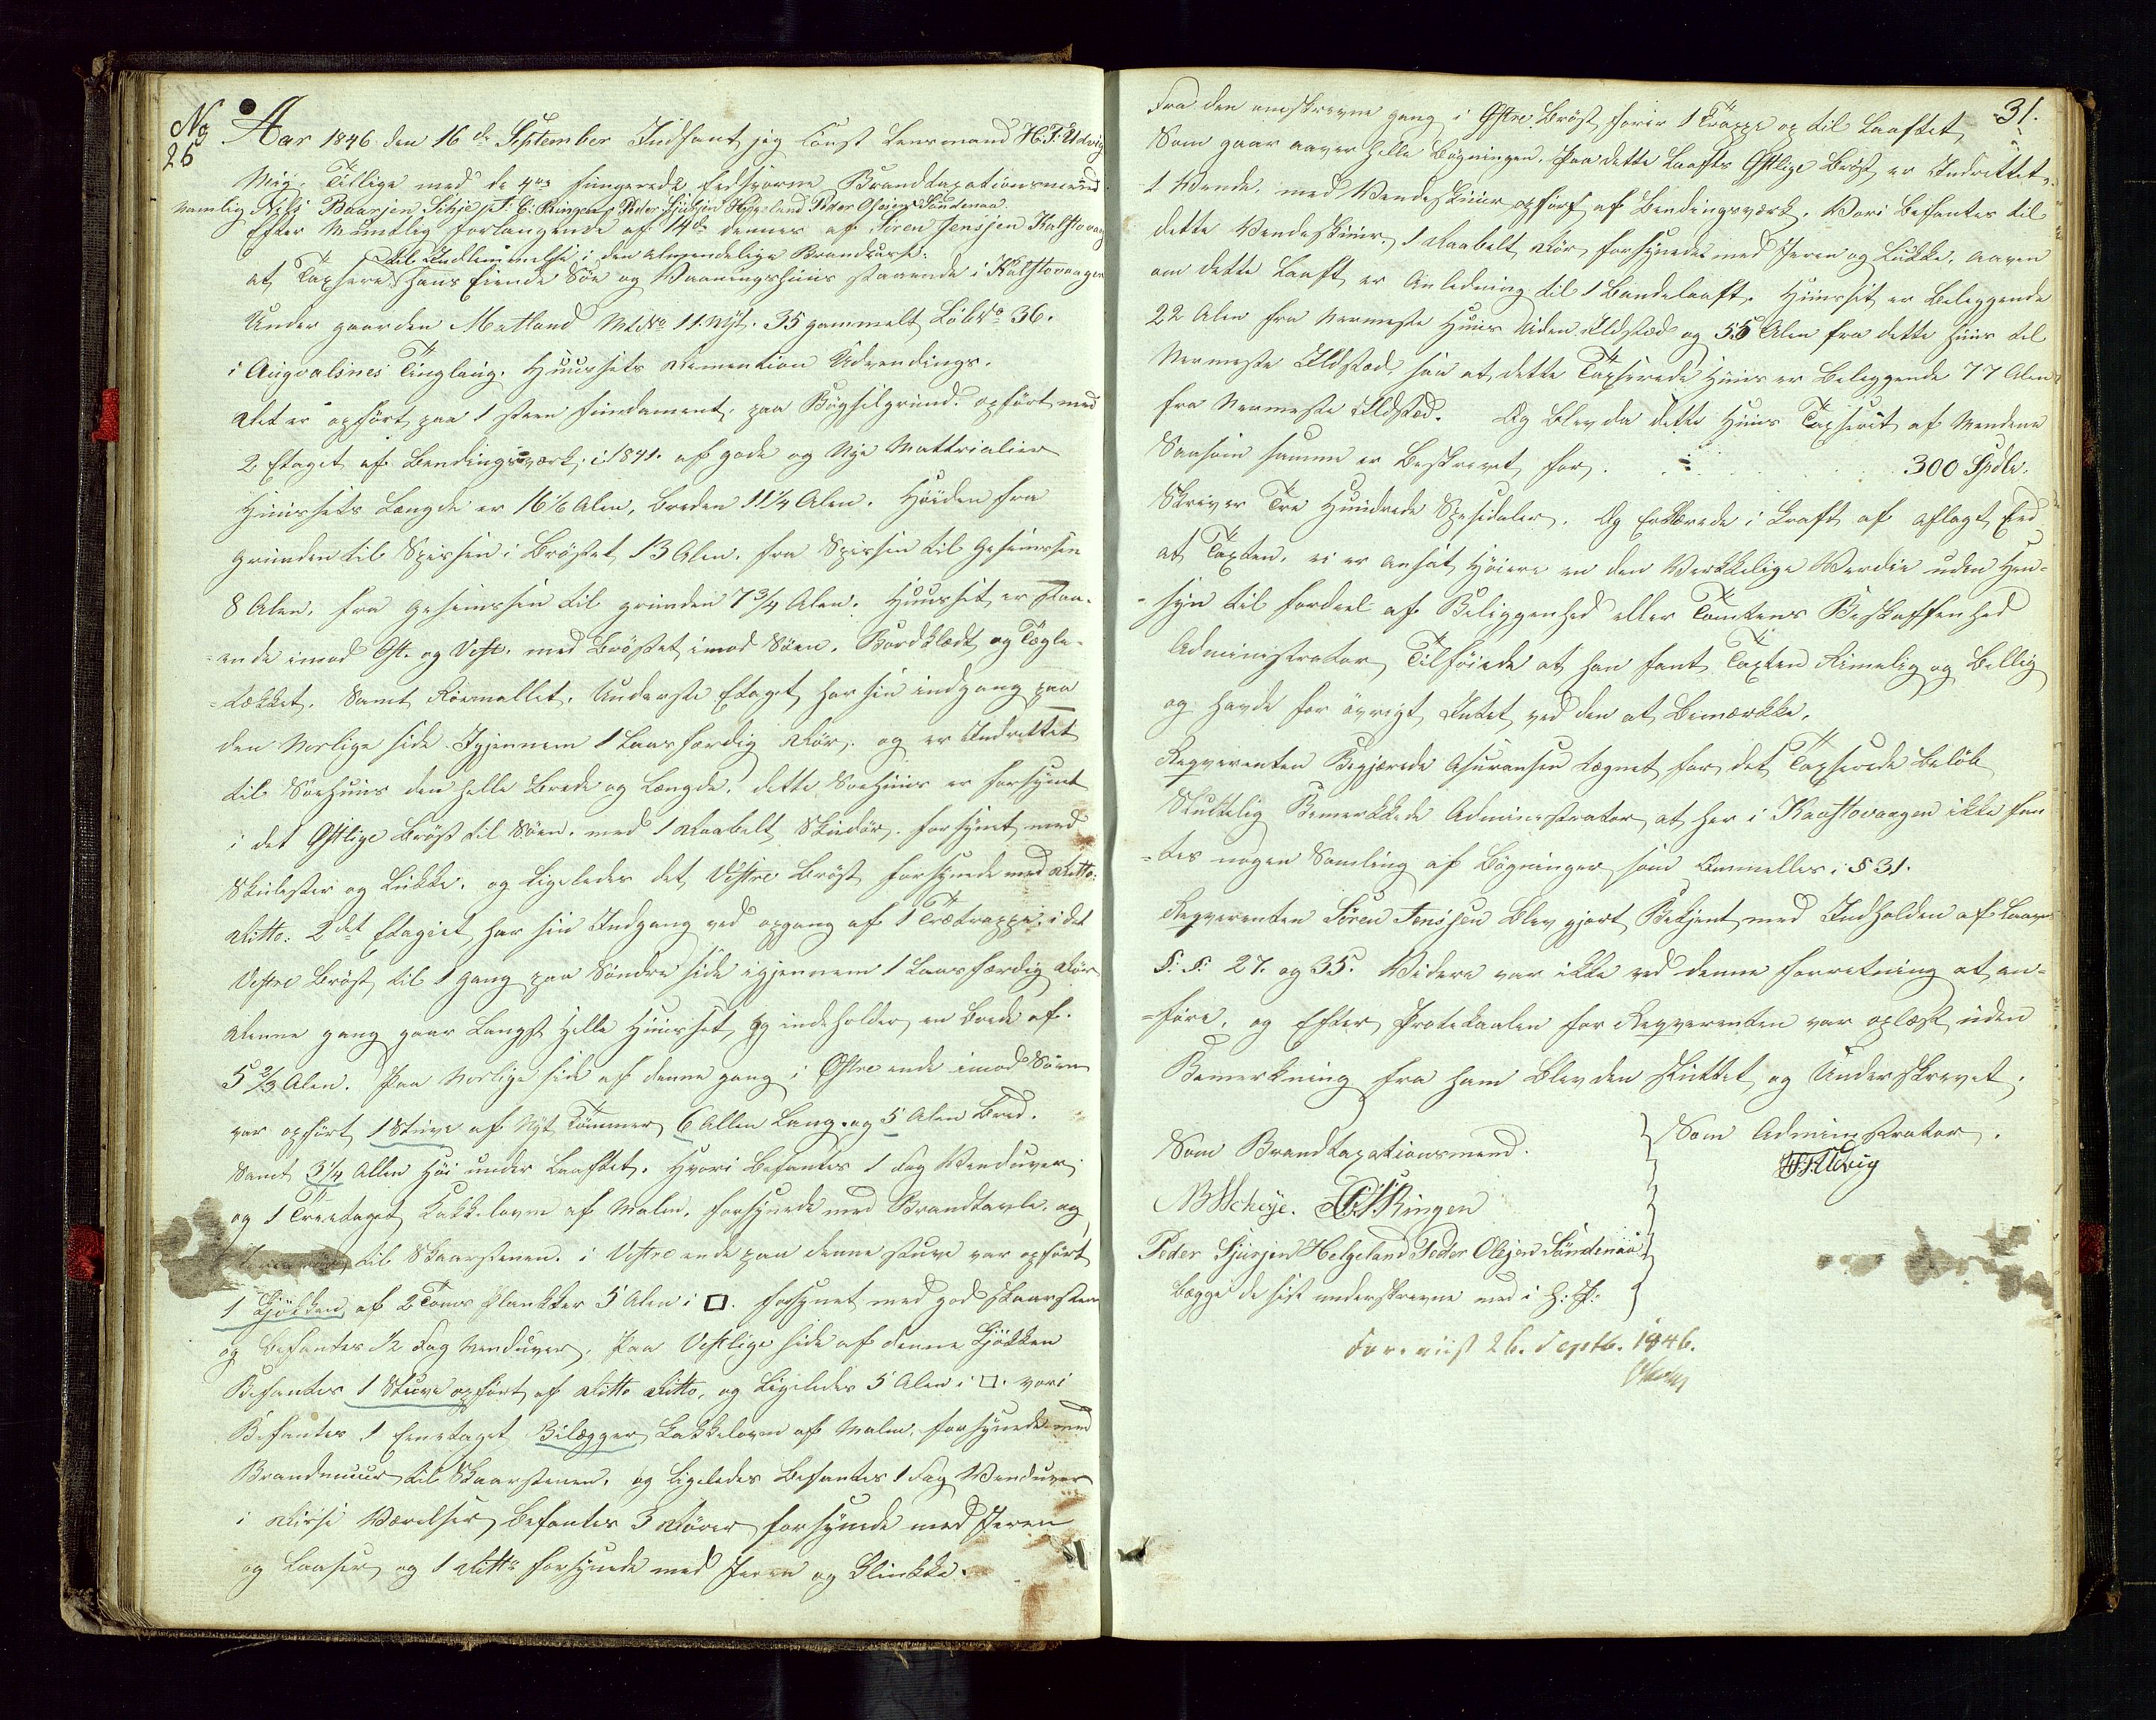 No
25
Aar 1846 den 16de September Indfant jeg Const Lensmand H. T. Udvig
Mig. Tillige med de 4re fungerede Eedsvorne Brandtaxationsmænd
namlig Niels Baarsen Schje, T. C. Ringen, Peder Sjursen Helgeland Peder Olsen Søndenaa.
Efter Mundtlig forlangende af 14de dennes af Søren Jenssen Kalstovaag
til Indlemmelse i den Almendelige Brandkasse.
at Taxsere hans Eiende Søe og Vaaningshuus staaende i Kalstovaagen
Under gaarden Matland Mt No 11. nyt. 35 gammelt Løb No 36.
i Augvalsnes Tinglaug. Huussets Demention Udvendings.
Det er opført paa 1 steen fundament, paa Bøgselgrund. opført med
2 Etager af Bendingsværk, i 1841. af gode og Nye Mattrialier
Huussets Længde er 16½ Alen, Breden 11¼ Alen. Høiden fra
grunden til Spissen i Brøstet 13 Alen. fra Spissen til Gesimssen
8 Alen. fra Gesimssen til grunden 7¾ Alen. Huusset er staa-
=ende imod Øst. og Vest. med Brøstet imod Søen. Bordklædt og Tegle-
=tækket. Samt Rømallet. Underste Etaget har sin indgang paa
den Norlige side Igjennem 1 Laasfærdig Dør. og er Indrettet
til Søehuus den helle Brede og Længde. dette Søehuus er forsynt
i det Østlige Brøst til Søen. med 1 Daabelt Skudør. forsynet med
Skulester og Lukke. og Ligeledes det Vestre Brøst forsynede med Ditto:
Ditto: 2det Etagiet har sin Indgang ved opgang af 1 Trætrappe. i det
Vestre Brøst til 1 gang paa Søndre side igjennem 1 Laasfærdig Dør
Denne gang gaar Langst Hele Huusset, og indeholder en Brede af.
5⅔ Alen. Paa Norlige side af denne gang i Østre ende imod Søen
var opført 1 Stuve af Nyt Tømmer 6 Allen Lang. og 5 Alen Bred.
Samt 3¼ Allen Høi under Laaftet. Hvori befantes 1 Fag Venduver
og 1 Treetaget Kakk-lovn af Malm. forsynede med Brandtavle. og
til Skaarstenen. i Vestre ende paa denne stuve var opført
1 Kjøkken af 2 Toms Plankker 5 Alen i □. forsynet med god Skaarsten
og befantes ½ Fag Venduver. Paa Vestlige side af denne Kjøkken
Befantes 1 Stuve opført af Ditto Ditto. og Ligeledes 5 Alen i □. vori
Befantes 1 Eenetaget Bilægger Kakkelovn af Malm, forsynede med
Brandmuur til Skaarstenen. og Ligeledes befantes 1 Fag Venduver
i Disse Værelser befantes 3 Dører forsynede med Jeren
og Laaser og 1 Ditto forsynede med Jeren og Klinkke.
31.
Fra den omskrevne gang i Østre Brøst fører 1 Trappe op til Laaftet
Som gaar aaver helle Bøgningen. Paa dette Laafts Østlige Brøst er Indrettet
1 Vende. med Vendeskuur opført af Bendingsværk. Vori befantes til
dette Vendeskuur. 1 Daabelt Dør forsynede med Jeren og Lukke. aaven
om dette Laaft er Anledning til 1 Bandelaaft. Huusset er Beleggende
22 Alen fra Nermeste Huus Uden Ildsted og 55 Alen fra dette huus til
Nermeste Ildsted, saa at dette Taxserede Huus er Beleggende 77 Alen
fra Nermeste Ildsted. Og blev da dette Huus Taxserit af Mendene
Saasom samme er Beskrevet for . . . 300 Spdlr.
Skriver Tre Hundrede Spesidaler. Og Erklerede i Kraft af aflagt Eed
at Taxten. ei er ansat Høiere en den Verkkelige Verdie uden Hen-
-syn til fordeel af Beliggenhed eller Tomtens Beskaffenhed
Administrator Tilføiede at han fant Taxten Rimelig og Billig
og havde for øvrigt Intet ved den at Bemærkke.
Reqverenten Begjærede Asuransen Tegnet for det Taxserede Beløb
Sluttelig Bemerkkede Administrator, at her i Kaastovaagen ikke fan
=tes nogen Samling af Bøgninger som Ommelles i § 31.
Reqverenten Søren Jenssen blev gjort Bekjent med Indholden af Laavens
§. §. 27. og 35. Videre var ikke ved denne forretning at an-
=føre, og Efter Protekaalen for Reqverenten var oplæst uden
Bemerkning fra ham blev den sluttet og Underskrevet.
Som Brandtaxationsmend.
Som Administrator.
H. T. Udvig
N B Scheye. T. C. Ringen
Peder Sjursen Helgeland Peder Olsen Søndenaa
begge de sist underskrevne med i H: P:
Foreviist 26. Septb. 1846.